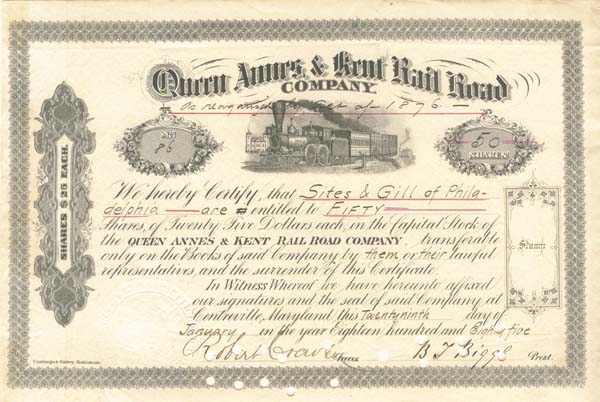 Queen Annes & Kent Rail Road
COMPANY.
As reorganized by Act of 1876
No.
86
50
SHARES
SHARES $25 EACH.
We hereby Certify, that Sites & Gill of Phila-
delphia are entitled to FIFTY
Shares, of Twenty Five Dollars each, in the Capital Stock of
the QUEEN ANNES & KENT RAIL ROAD COMPANY, transferable
only on the Books of said Company by them or their lawful
representatives, and the surrender of this Certificate.
Stamp
In Witness Whereof we have hereunto affixed
our signatures and the seal of said Company at
Centreville, Maryland this Twentyninth day of
January in the year Eighteen Hundred and Eighty five
Robert Treas. B T Biggs Prest.